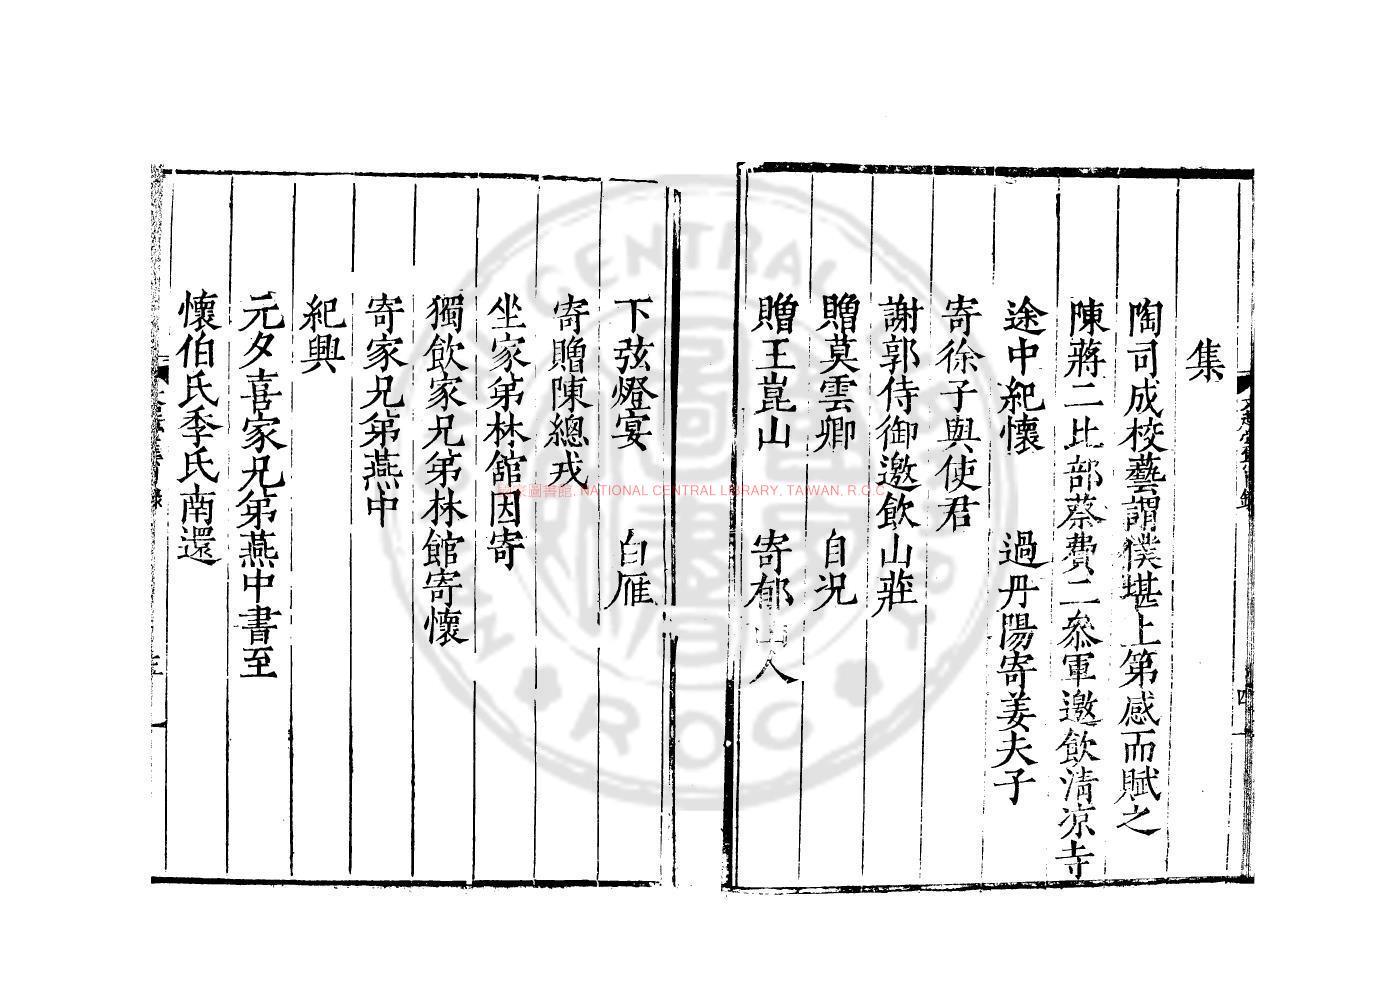 集
陶司成校藝謂僕堪上第感而賦之
陳蔣二比部蔡費二叅軍邀飲清凉寺
途中紀懷 過丹陽寄姜夫子
寄徐子與使君
謝郭侍御邀飲山莊
贈莫雲卿 自況
贈王崑山 寄郁山人
下弦燈宴 白雁
寄贈陳總戎
坐家弟林舘因寄
獨飲家兄弟林館寄懷
寄家兄弟燕中
紀興
元夕喜家兄弟燕中書至
懷伯氏季氏南還
NATIONAL CENTRAL LIBRARY, TAIWAN, R.O.C